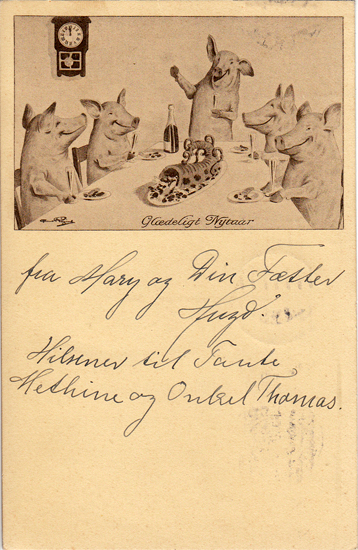 Glædeligt Nytaar
fra Mary og Din Fætter
Hilsener til Tante
Methine og Onkel Thomas.